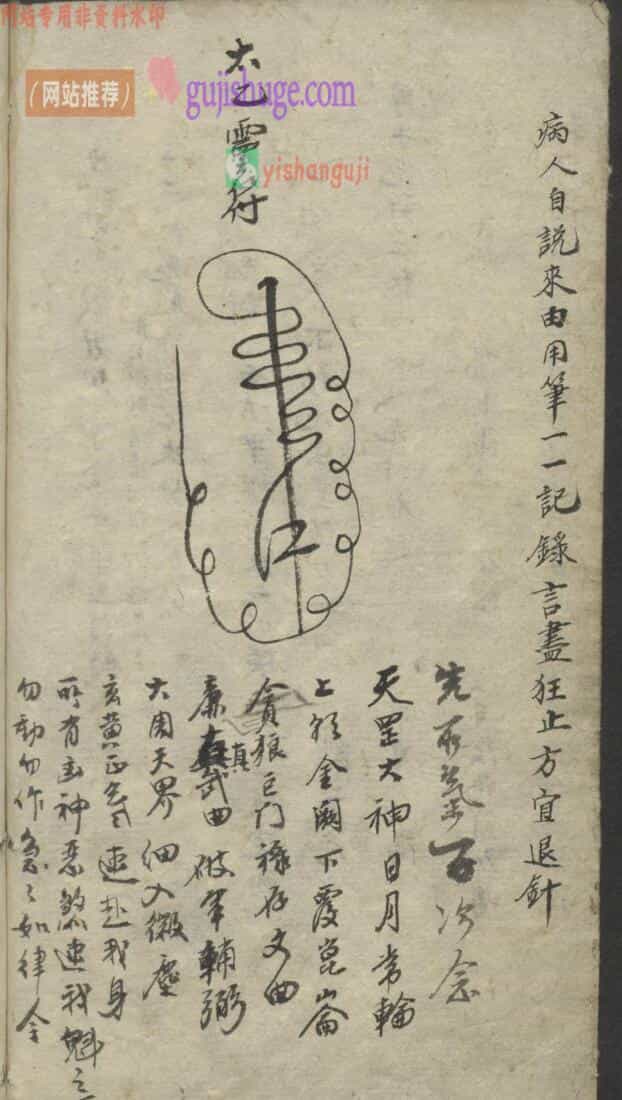 网站专用非资料水印
(网站推荐)
gujishuge.com
yishanguji
病人自説來由用筆一一記錄言盡狂止方宜退針
太乙靈符
先取氣一百次念
天罡大神日月常輪
上朝金闕下覆崑崙
貪狼巨门祿存文曲
廉真武曲破軍輔弼
大周天界细入微塵
玄黄正炁速赴我身
所有凶神惡煞速我魁之
勿動勿作急急如律令